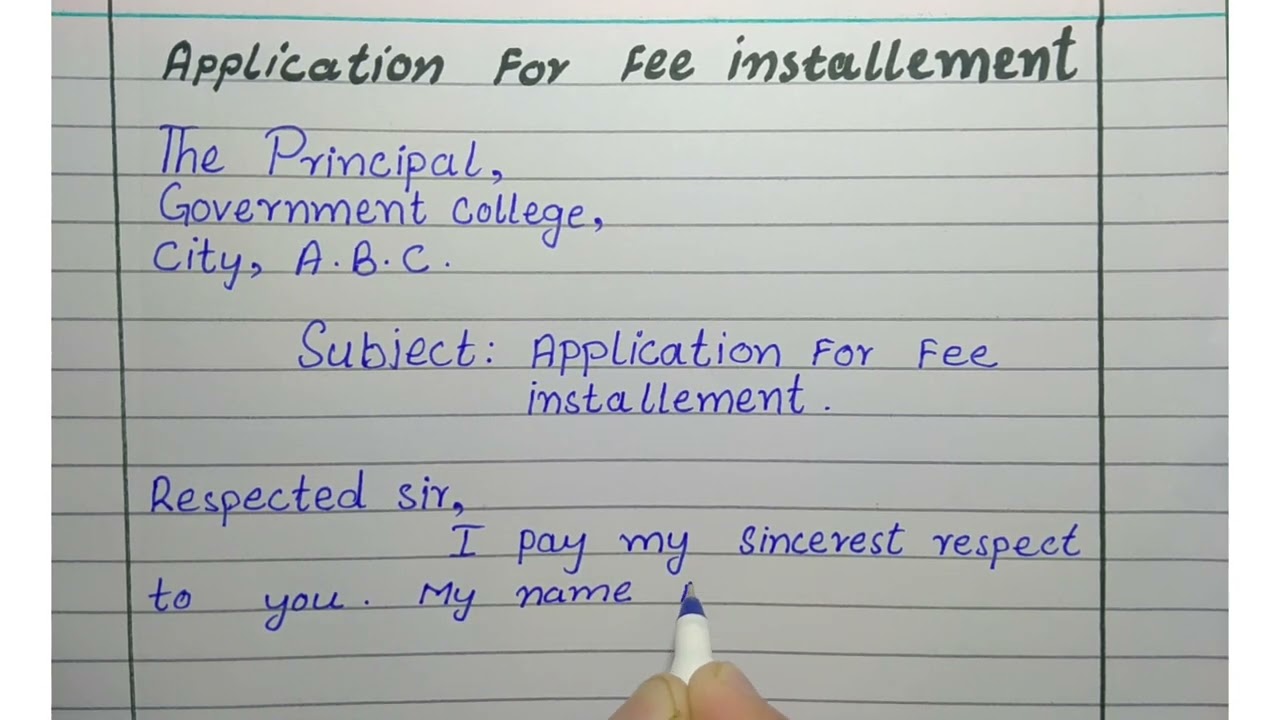 Application For Fee installement
The Principal,
Government college,
City, A.B.C.
Subject: Application For Fee
installement.
Respected sir,
I pay my sincerest respect
to you. My name